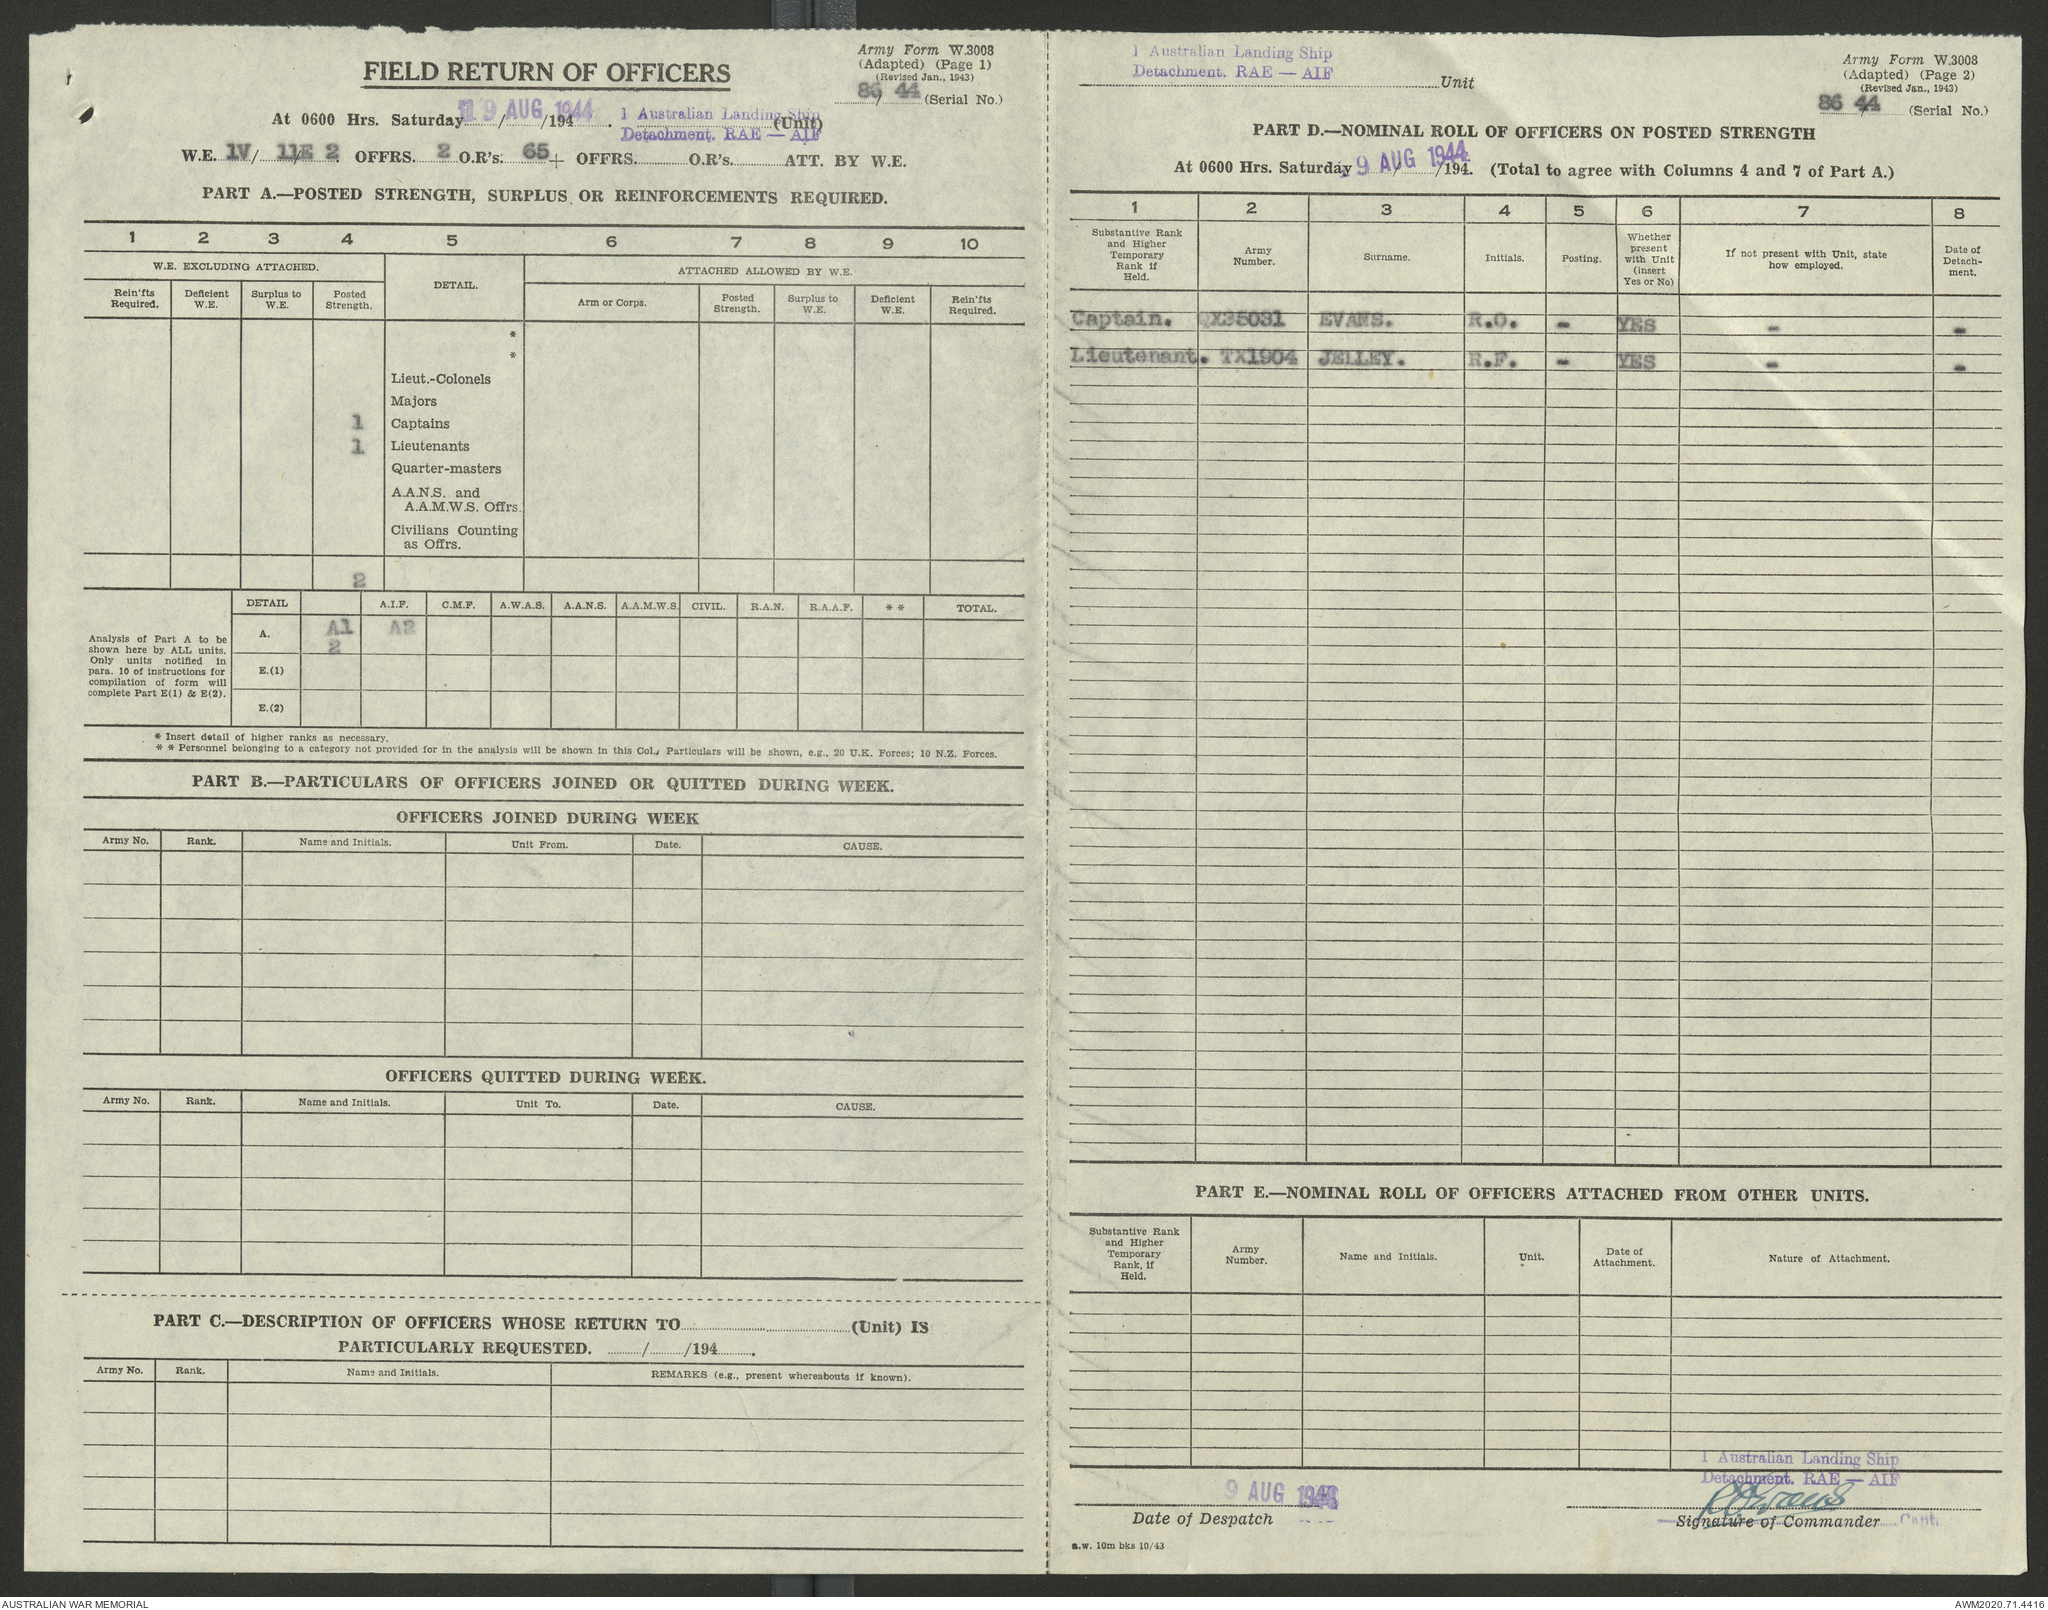 Army Form W.3008
(Adapted) (Page 1)
(Revised Jan., 1943)
86/44 (Serial No.)
FIELD RETURN OF OFFICERS
At 0600 Hrs. Saturday 19 AUG 1944 /194 . 1 Australian Landing Ship (Unit)
Detachment. RAE — AIF
W.E. 1V/ 11E 2. OFFRS. 2 O.R's. 65 + OFFRS. O.R's. ATT. BY W.E.
PART A.—POSTED STRENGTH, SURPLUS OR REINFORCEMENTS REQUIRED.
1 2 3 4 5 6 7 8 9 10
W.E. EXCLUDING ATTACHED. DETAIL. ATTACHED ALLOWED BY W.E.
Rein'fts Required. Deficient W.E. Surplus to W.E. Posted Strength. Arm or Corps. Posted Strength. Surplus to W.E. Deficient W.E. Rein'fts Required.
*
*
Lieut.-Colonels
Majors
1 Captains
1 Lieutenants
Quarter-masters
A.A.N.S. and
A.A.M.W.S. Offrs.
Civilians Counting
as Offrs.
2
DETAIL A.I.F. C.M.F. A.W.A.S. A.A.N.S. A.A.M.W.S. CIVIL. R.A.N. R.A.A.F. * * TOTAL.
Analysis of Part A to be
shown here by ALL units.
Only units notified in
para. 10 of instructions for
compilation of form will
complete Part E(1) & E(2).
A. A1 A2
2
E.(1)
E.(2)
* Insert detail of higher ranks as necessary.
* * Personnel belonging to a category not provided for in the analysis will be shown in this Col. Particulars will be shown, e.g., 20 U.K. Forces; 10 N.Z. Forces.
PART B.—PARTICULARS OF OFFICERS JOINED OR QUITTED DURING WEEK.
OFFICERS JOINED DURING WEEK
Army No. Rank. Name and Initials. Unit From. Date. CAUSE.
OFFICERS QUITTED DURING WEEK.
Army No. Rank. Name and Initials. Unit To. Date. CAUSE.
PART C.—DESCRIPTION OF OFFICERS WHOSE RETURN TO (Unit) IS
PARTICULARLY REQUESTED. / /194 .
Army No. Rank. Name and Initials. REMARKS (e.g., present whereabouts if known).
1 Australian Landing Ship
Detachment. RAE — AIF Unit
Army Form W.3008
(Adapted) (Page 2)
(Revised Jan., 1943)
86/44 (Serial No.)
PART D.—NOMINAL ROLL OF OFFICERS ON POSTED STRENGTH
At 0600 Hrs. Saturday 9 AUG 1944 /194 . (Total to agree with Columns 4 and 7 of Part A.)
1 2 3 4 5 6 7 8
Substantive Rank and Higher Temporary Rank if Held. Army Number. Surname. Initials. Posting. Whether present with Unit (insert Yes or No) If not present with Unit, state how employed. Date of Detachment.
Captain. QX35031 EVANS. R.O. - YES - -
Lieutenant. TX1904 JELLEY. R.F. - YES - -
PART E.—NOMINAL ROLL OF OFFICERS ATTACHED FROM OTHER UNITS.
Substantive Rank and Higher Temporary Rank, if Held. Army Number. Name and Initials. Unit. Date of Attachment. Nature of Attachment.
1 Australian Landing Ship
Detachment. RAE — AIF
9 AUG 1944
R O Evans
Date of Despatch Signature of Commander Capt.
a.w. 10m bks 10/43
AUSTRALIAN WAR MEMORIAL AWM2020.71.4416